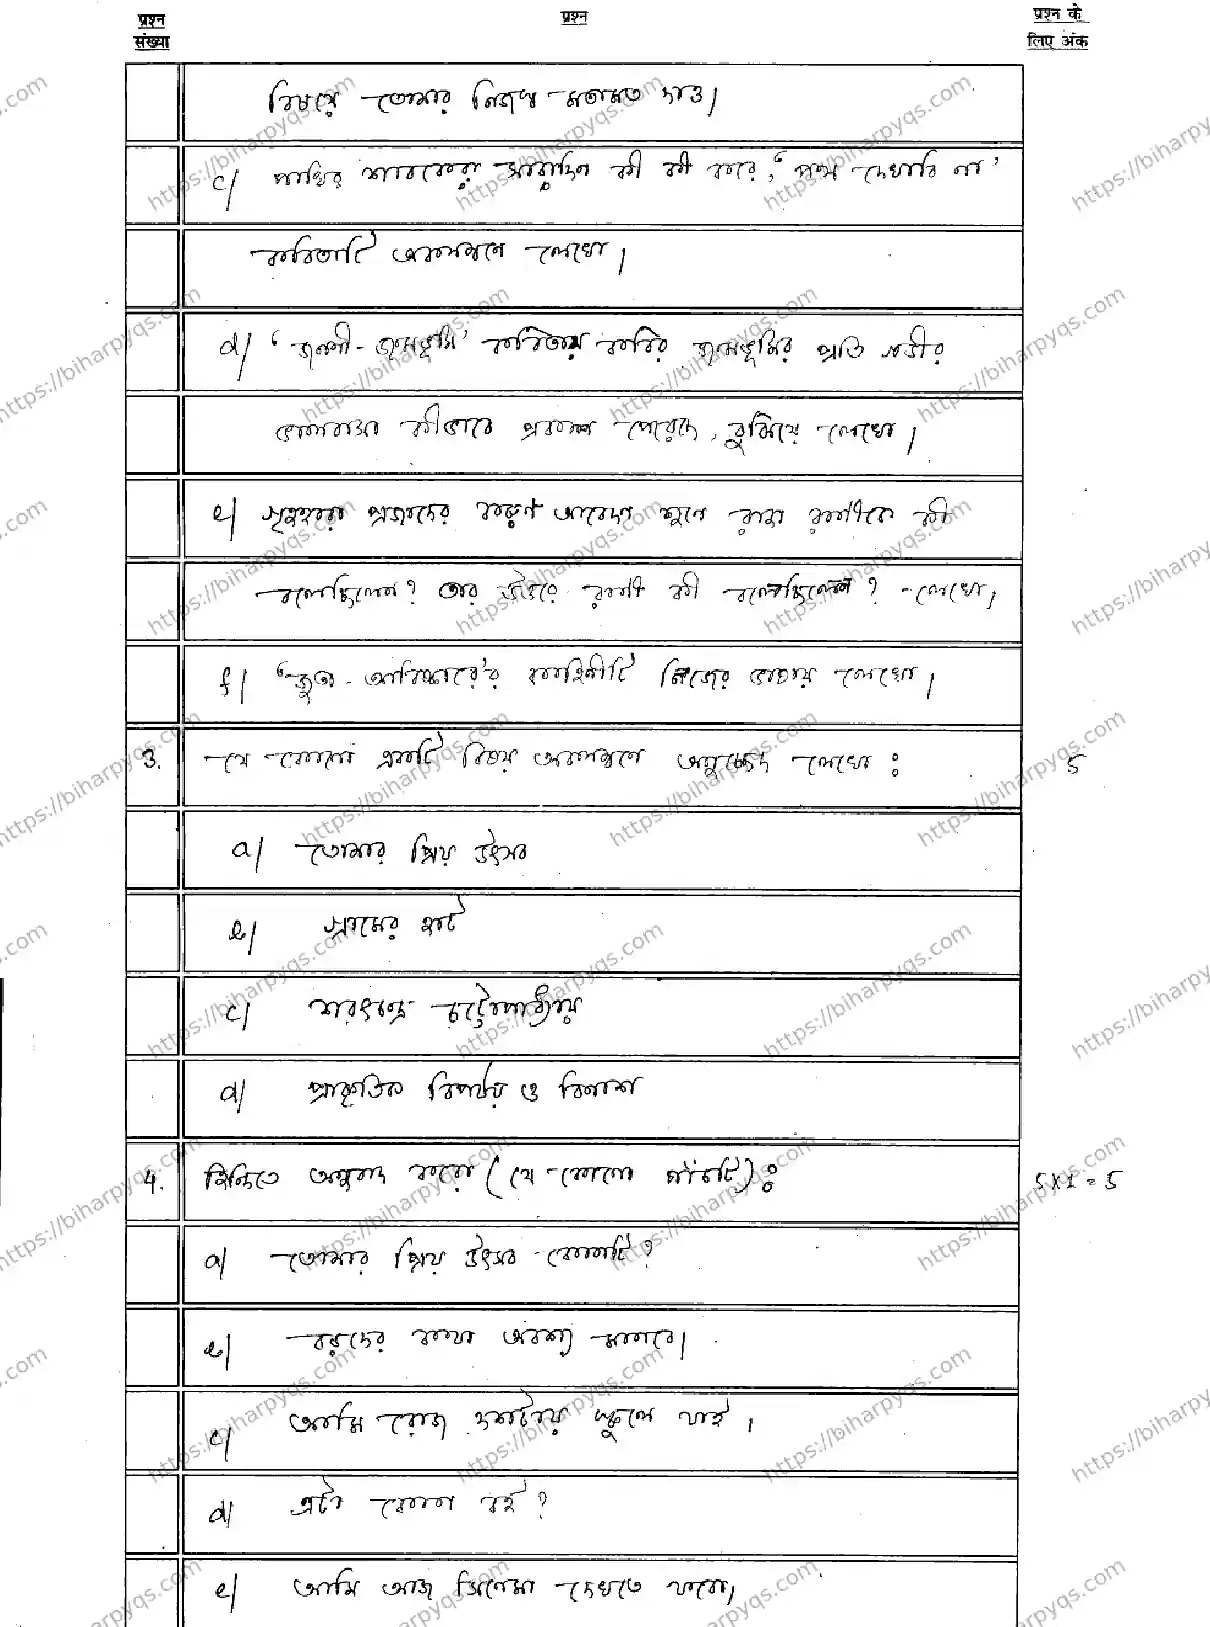 प्रश्न संख्या प्रश्न प्रश्न के लिए अंक
বিষয়ে তোমার নিজস্ব মতামত দাও।
c) পাখির শাবকেরা সারাদিন কী কী করে, 'পক্ষ দেখাবি না'
কবিতাটি অবলম্বনে লেখো।
d) 'জননী-জন্মভূমি' কবিতায় কবির জন্মভূমির প্রতি গভীর
ভালবাসা কীভাবে প্রকাশ পেয়েছে, বুঝিয়ে লেখো।
e) গৃহহারা প্রজাদের করুণ আবেদন শুনে রাজা রাণীকে কী
বলেছিলেন? তার উত্তরে রাণী কী বলেছিলেন? লেখো।
f) 'জুতা-আবিষ্কারে'র কাহিনীটি নিজের ভাষায় লেখো।
3. যে কোনো একটি বিষয় অবলম্বনে অনুচ্ছেদ লেখো : 5
a) তোমার প্রিয় উৎসব
b) গ্রামের হাট
c) শরৎচন্দ্র চট্টোপাধ্যায়
d) প্রাকৃতিক বিপর্যয় ও বিনাশ
4. হিন্দিতে অনুবাদ করো (যে কোনো পাঁচটি) : 5×1=5
a) তোমার প্রিয় উৎসব কোনটি?
b) বড়দের কথা অবশ্য মানবে।
c) আমি রোজ দশটায় স্কুলে যাই।
d) এটা কোন বই?
e) আমি আজ সিনেমা দেখতে যাবো।
https://biharpyqs.com